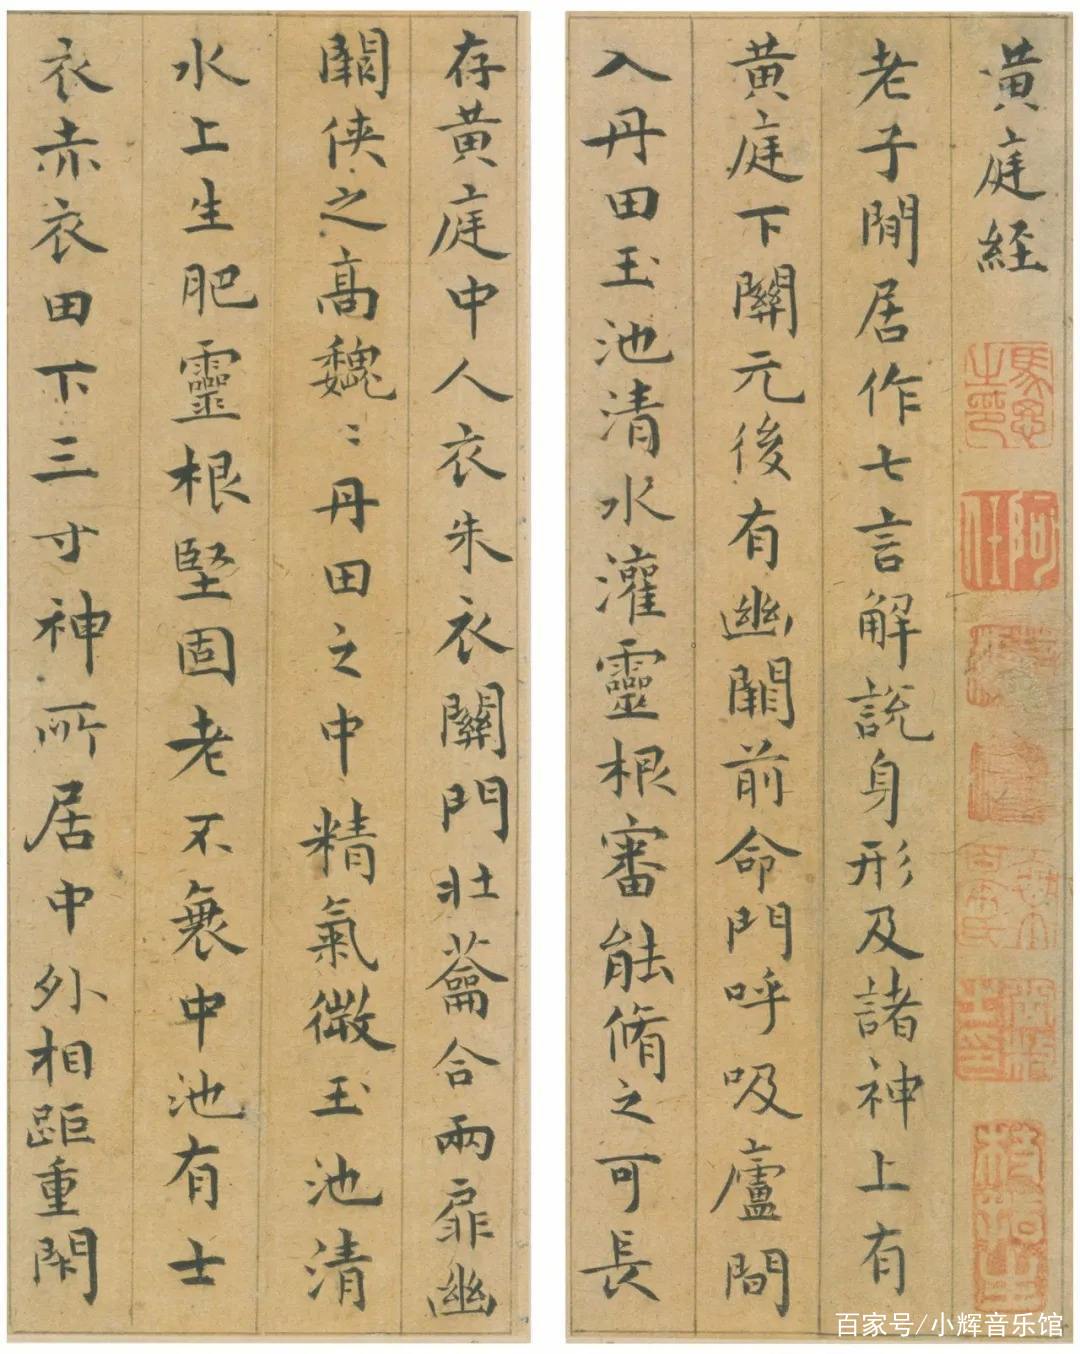 黄庭经
老子閒居作七言解說身形及諸神上有
黄庭下關元後有幽闕前命門呼吸廬間
入丹田玉池清水灌靈根審能脩之可長
存黄庭中人衣朱衣關門壯蘥合兩扉幽
闕侠之高魏〻丹田之中精氣微玉池清
水上生肥靈根堅固老不衰中池有士
衣赤衣田下三寸神所居中外相距重閉
阿任
百家号/小辉音乐馆